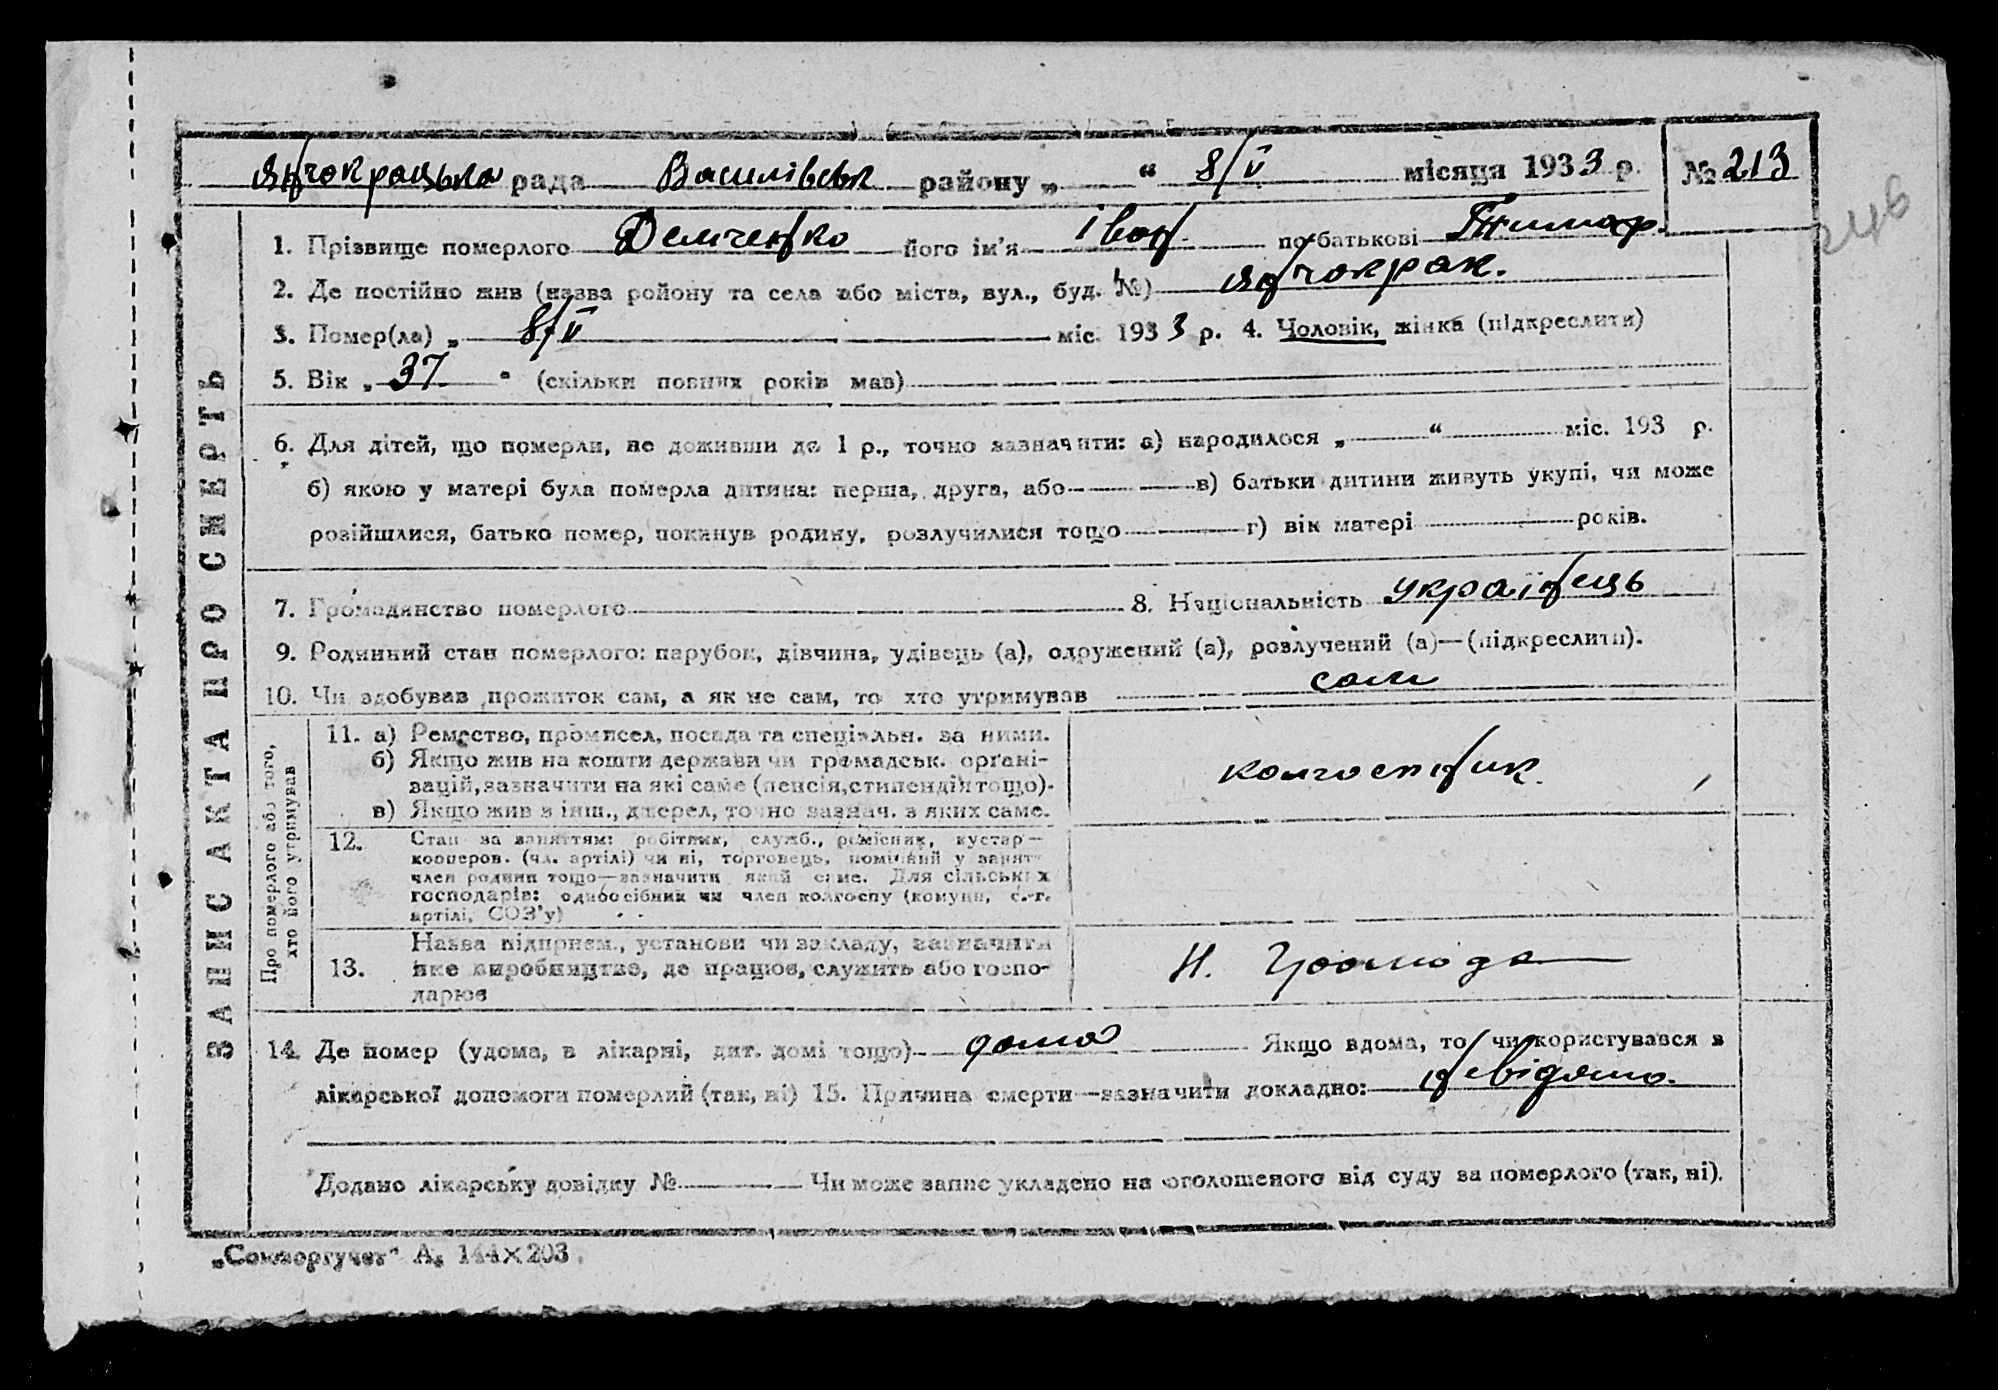 Янчокрацька рада Василівськ району „ “ 8/V місяця 1933 р. № 213
246
1. Прізвище померлого Демченко його ім'я Іван по батькові Тимоф.
2. Де постійно жив (назва району та села або міста, вул., буд. №) Янчокрак.
3. Помер(ла) „ 8/V міс. 1933 р. 4. Чоловік, жінка (підкреслити)
5. Вік „ 37 " (скільки повних років мав)
6. Для дітей, що померли, не доживши до 1 р., точно зазначити: а) народилося „ “ міс. 193 р.
б) якою у матері була померла дитина: перша, друга, або в) батьки дитини живуть укупі, чи може
розійшлися, батько помер, покинув родину, розлучилися тощо г) вік матері років.
7. Громадянство померлого 8. Національність українець
9. Родинний стан померлого: парубок, дівчина, удівець (а), одружений (а), розлучений (а)—(підкреслити).
10. Чи здобував прожиток сам, а як не сам, то хто утримував сам
ЗАПИС АКТА ПРО СМЕРТЬ
Про померлого або того,
хто його утримував
11. а) Ремество, промисел, посада та спеціяльн. за ними.
б) Якщо жив на кошти держави чи громадськ. органі-
зацій, зазначити на які саме (пенсія, стипендія тощо).
в) Якщо жив з інш., джерел, точно зазнач. з яких саме.
колгоспник.
12. Стан за заняттям: робітник, служб., ремісник, кустар—
кооперов. (чл. артілі) чи ні, торговець, помічний у занят-
член родини тощо—зазначити який саме. Для сільських
господарів: одноосібник чи член колгоспу (комуни, с.-г.
артілі, СОЗ'у)
13. Назва підприєм., установи чи закладу, зазначити
яке виробництво, де працює, служить або госпо-
дарює
Н. Громада
14. Де помер (удома, в лікарні, дит. домі тощо) дома Якщо вдома, то чи користувався з
лікарської допомоги померлий (так, ні) 15. Причина смерти—зазначити докладно: невідомо.
Додано лікарську довідку № Чи може запис укладено на оголошеного від суду за померлого (так, ні).
„Союзоргучет" А₆ 144×203